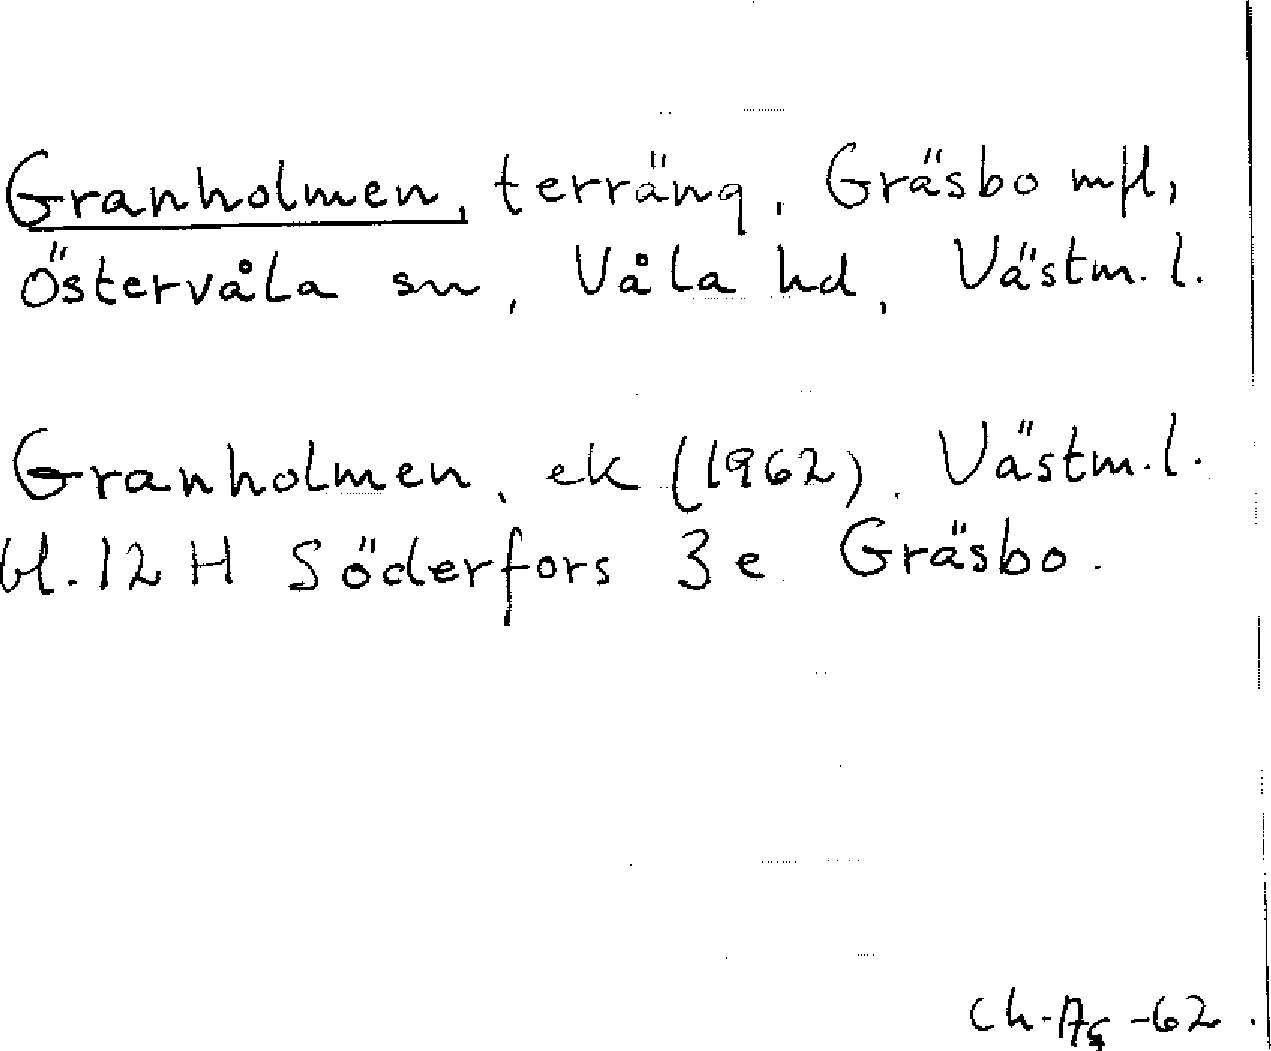 Granholmen, terräng, Gräsbo mfl,
Östervåla sn, Våla hd, Västm. l.
Granholmen, ek (1962). Västm. l.
bl. 12 H Söderfors 3 e Gräsbo.
-62.